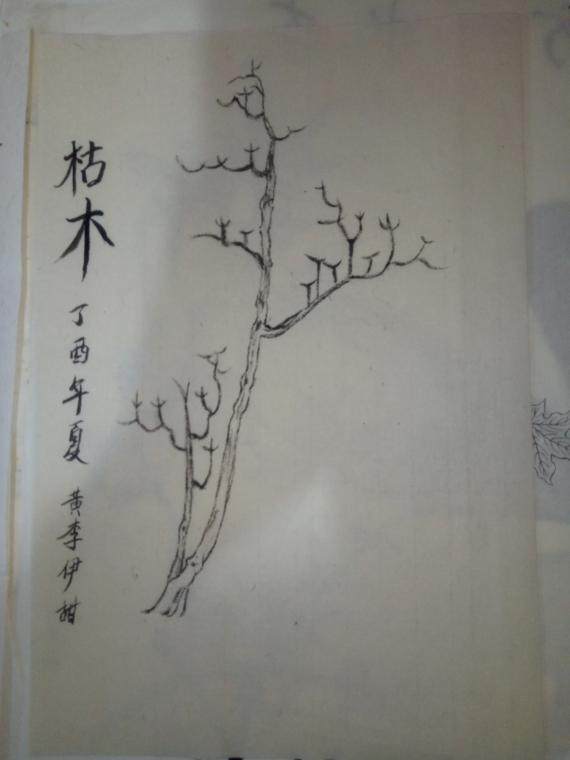 枯木
丁酉年夏
黄李伊甜